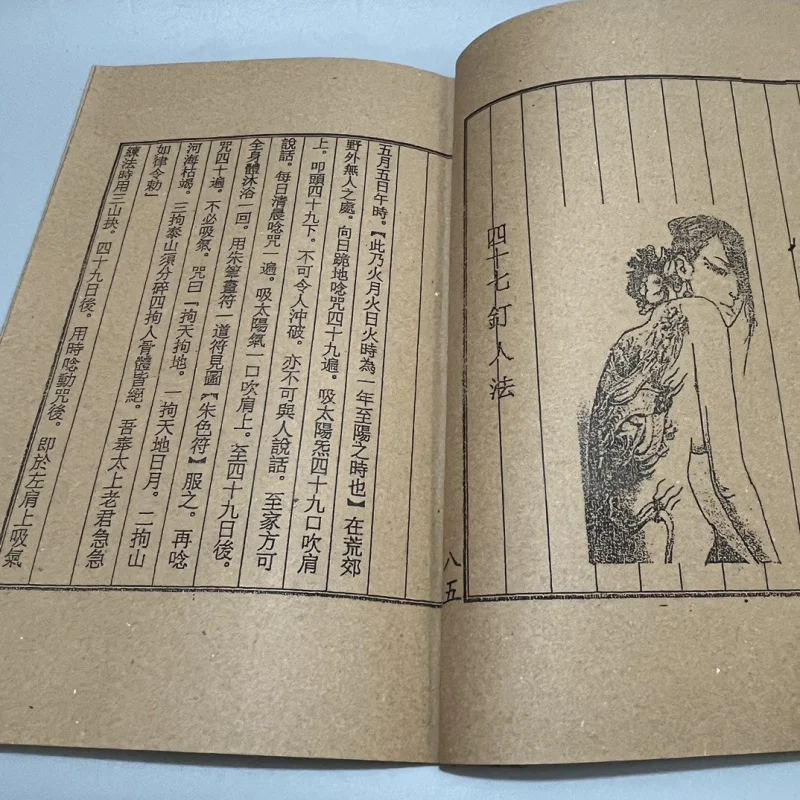 四十七釘人法
八五
五月五日午時。【此乃火月火日火時為一年至陽之時也】在荒郊
野外無人之處。向日跪地唸咒四十九遍。吸太陽炁四十九口吹肩
上。叩頭四十九下。不可令人沖破。亦不可與人說話。至家方可
說話。每日清晨唸咒一遍。吸太陽氣一口吹肩上。至四十九日後。
全身體沐浴一回。用朱筆畫符一道符見圖【朱色符】服之。再唸
咒四十遍。不必吸氣。咒曰「拘天拘地。一拘天地日月。二拘山
河海枯竭。三拘泰山須分碎四拘人骨體皆絕。吾奉太上老君急急
如律令勅」
練法時用三山抉。四十九日後。用時唸動咒後。即於左肩上吸氣